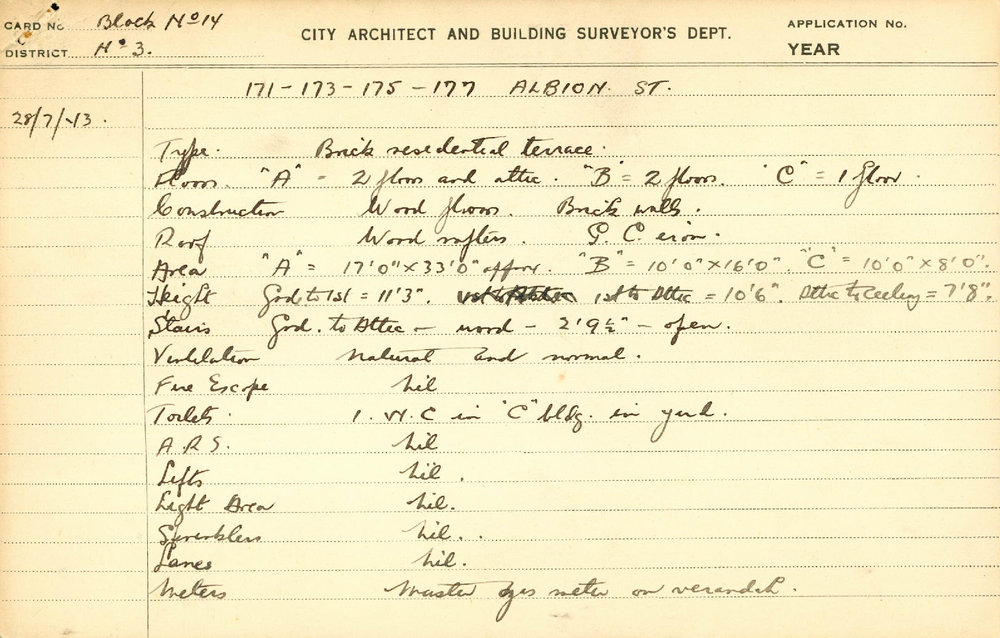 CARD No. Block No 14
CITY ARCHITECT AND BUILDING SURVEYOR'S DEPT.
APPLICATION No.
DISTRICT No 3.
YEAR
171-173-175-177 ALBION. ST.
28/7/43.
Type. Brick residential terrace.
Floors. "A" = 2 floors and attic. "B" = 2 floors. "C" = 1 floor.
Construction Wood floors. Brick walls.
Roof Wood rafters. G. C. iron.
Area "A" = 17'0" x 33'0" approx. "B" = 10'0" x 16'0". "C" = 10'0" x 8'0".
Height Grd to 1st = 11'3". 1st to Attic = 10'6". Attic to Ceiling = 7'8".
Stairs Grd. to Attic - wood - 2'9½" - open.
Ventilation natural and normal.
Fire Escape nil
Toilets. 1. W. C in "C" bldg. in yard.
A.R.S. nil
Lifts nil.
Light Area nil.
Sprinklers nil..
Lanes nil.
Meters Master gas meter on verandah.